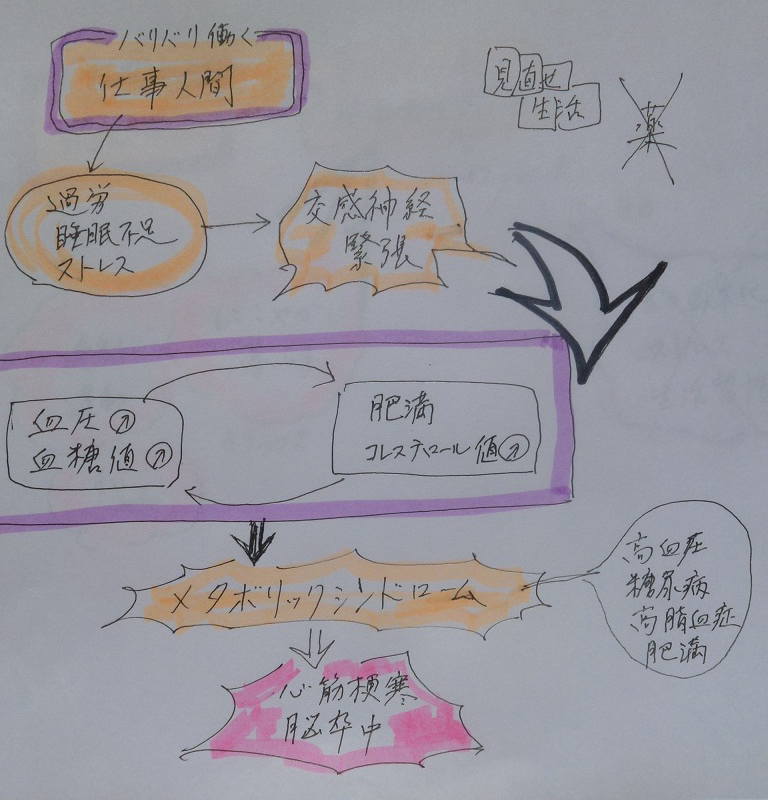 バリバリ働く
仕事人間
見直せ
生活
薬
過労
睡眠不足
ストレス
交感神経
緊張
血圧↗
血糖値↗
肥満
コレステロール値↗
メタボリックシンドローム
高血圧
糖尿病
高脂血症
肥満
心筋梗塞
脳卒中